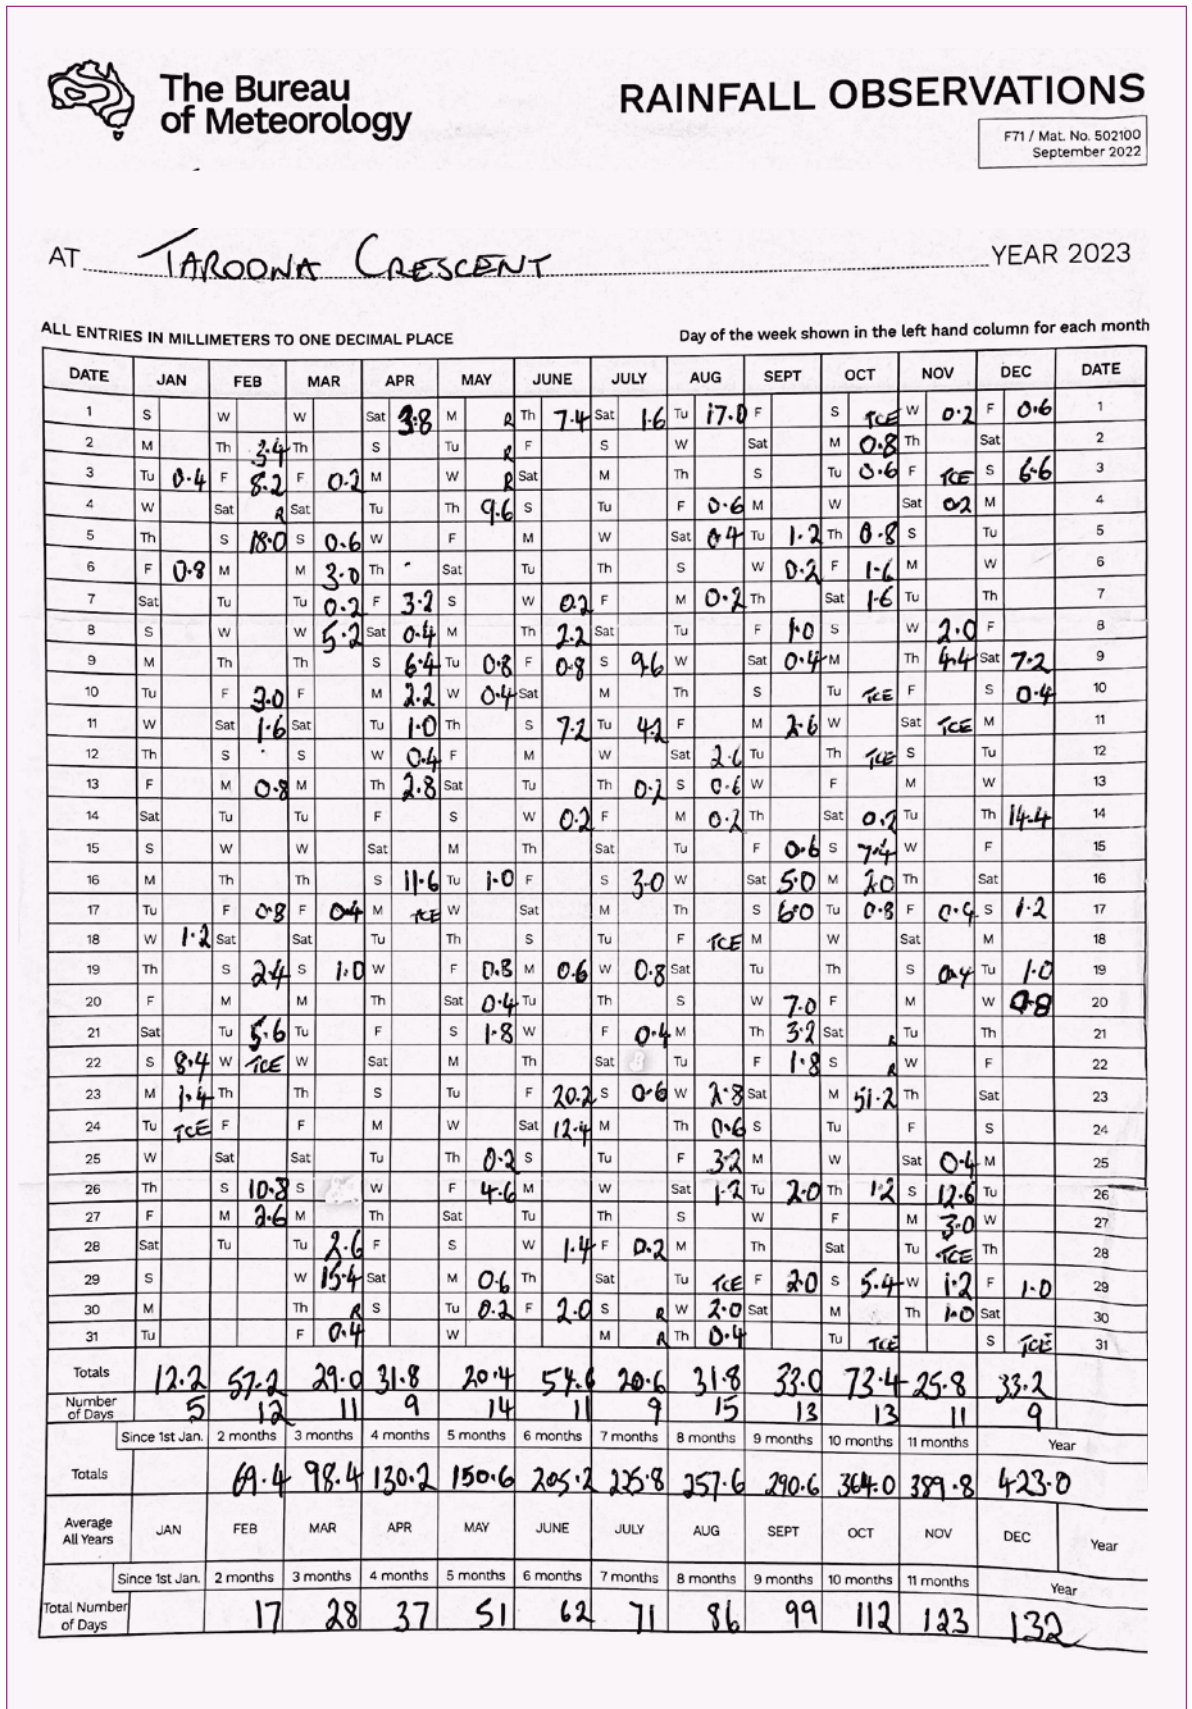 The Bureau
of Meteorology
RAINFALL OBSERVATIONS
F71 / Mat. No. 502100
September 2022
AT TAROONA CRESCENT YEAR 2023
ALL ENTRIES IN MILLIMETERS TO ONE DECIMAL PLACE Day of the week shown in the left hand column for each month
DATE JAN FEB MAR APR MAY JUNE JULY AUG SEPT OCT NOV DEC DATE
1 S W W Sat 3.8 M R Th 7.4 Sat 1.6 Tu 17.0 F S TCE W 0.2 F 0.6 1
2 M Th 3.4 Th S Tu R F S W Sat M 0.8 Th Sat 2
3 Tu 0.4 F 8.2 F 0.2 M W R Sat M Th S Tu 0.6 F TCE S 6.6 3
4 W Sat R Sat Tu Th 9.6 S Tu F 0.6 M W Sat 0.2 M 4
5 Th S 18.0 S 0.6 W F M W Sat 0.4 Tu 1.2 Th 0.8 S Tu 5
6 F 0.8 M M 3.0 Th Sat Tu Th S W 0.2 F 1.6 M W 6
7 Sat Tu Tu 0.2 F 3.2 S W 0.2 F M 0.2 Th Sat 1.6 Tu Th 7
8 S W W 5.2 Sat 0.4 M Th 2.2 Sat Tu F 1.0 S W 2.0 F 8
9 M Th Th S 6.4 Tu 0.8 F 0.8 S 9.6 W Sat 0.4 M Th 4.4 Sat 7.2 9
10 Tu F 3.0 F M 2.2 W 0.4 Sat M Th S Tu TCE F S 0.4 10
11 W Sat 1.6 Sat Tu 1.0 Th S 7.2 Tu 4.2 F M 2.6 W Sat TCE M 11
12 Th S S W 0.4 F M W Sat 2.6 Tu Th TCE S Tu 12
13 F M 0.8 M Th 2.8 Sat Tu Th 0.2 S 0.6 W F M W 13
14 Sat Tu Tu F S W 0.2 F M 0.2 Th Sat 0.2 Tu Th 14.4 14
15 S W W Sat M Th Sat Tu F 0.6 S 7.4 W F 15
16 M Th Th S 11.6 Tu 1.0 F S 3.0 W Sat 5.0 M 2.0 Th Sat 16
17 Tu F 0.8 F 0.4 M TCE W Sat M Th S 6.0 Tu 0.8 F 0.4 S 1.2 17
18 W 1.2 Sat Sat Tu Th S Tu F TCE M W Sat M 18
19 Th S 2.4 S 1.0 W F 0.8 M 0.6 W 0.8 Sat Tu Th S 0.4 Tu 1.0 19
20 F M M Th Sat 0.4 Tu Th S W 7.0 F M W 0.8 20
21 Sat Tu 5.6 Tu F S 1.8 W F 0.4 M Th 3.2 Sat R Tu Th 21
22 S 8.4 W TCE W Sat M Th Sat Tu F 1.8 S R W F 22
23 M 1.4 Th Th S Tu F 20.2 S 0.6 W 2.8 Sat M 51.2 Th Sat 23
24 Tu TCE F F M W Sat 12.4 M Th 0.6 S Tu F S 24
25 W Sat Sat Tu Th 0.2 S Tu F 3.2 M W Sat 0.4 M 25
26 Th S 10.8 S W F 4.6 M W Sat 1.2 Tu 2.0 Th 1.2 S 12.6 Tu 26
27 F M 2.6 M Th Sat Tu Th S W F M 3.0 W 27
28 Sat Tu Tu 2.6 F S W 1.4 F 0.2 M Th Sat Tu TCE Th 28
29 S W 15.4 Sat M 0.6 Th Sat Tu TCE F 2.0 S 5.4 W 1.2 F 1.0 29
30 M Th R S Tu 0.2 F 2.0 S R W 2.0 Sat M Th 1.0 Sat 30
31 Tu F 0.4 W M R Th 0.4 Tu TCE S TCE 31
Totals 12.2 57.2 29.0 31.8 20.4 54.6 20.6 31.8 33.0 73.4 25.8 33.2
Number
of Days 5 12 11 9 14 11 9 15 13 13 11 9
Since 1st Jan. 2 months 3 months 4 months 5 months 6 months 7 months 8 months 9 months 10 months 11 months Year
Totals 69.4 98.4 130.2 150.6 205.2 225.8 257.6 290.6 364.0 389.8 423.0
Average
All Years JAN FEB MAR APR MAY JUNE JULY AUG SEPT OCT NOV DEC Year
Since 1st Jan. 2 months 3 months 4 months 5 months 6 months 7 months 8 months 9 months 10 months 11 months Year
Total Number
of Days 17 28 37 51 62 71 86 99 112 123 132